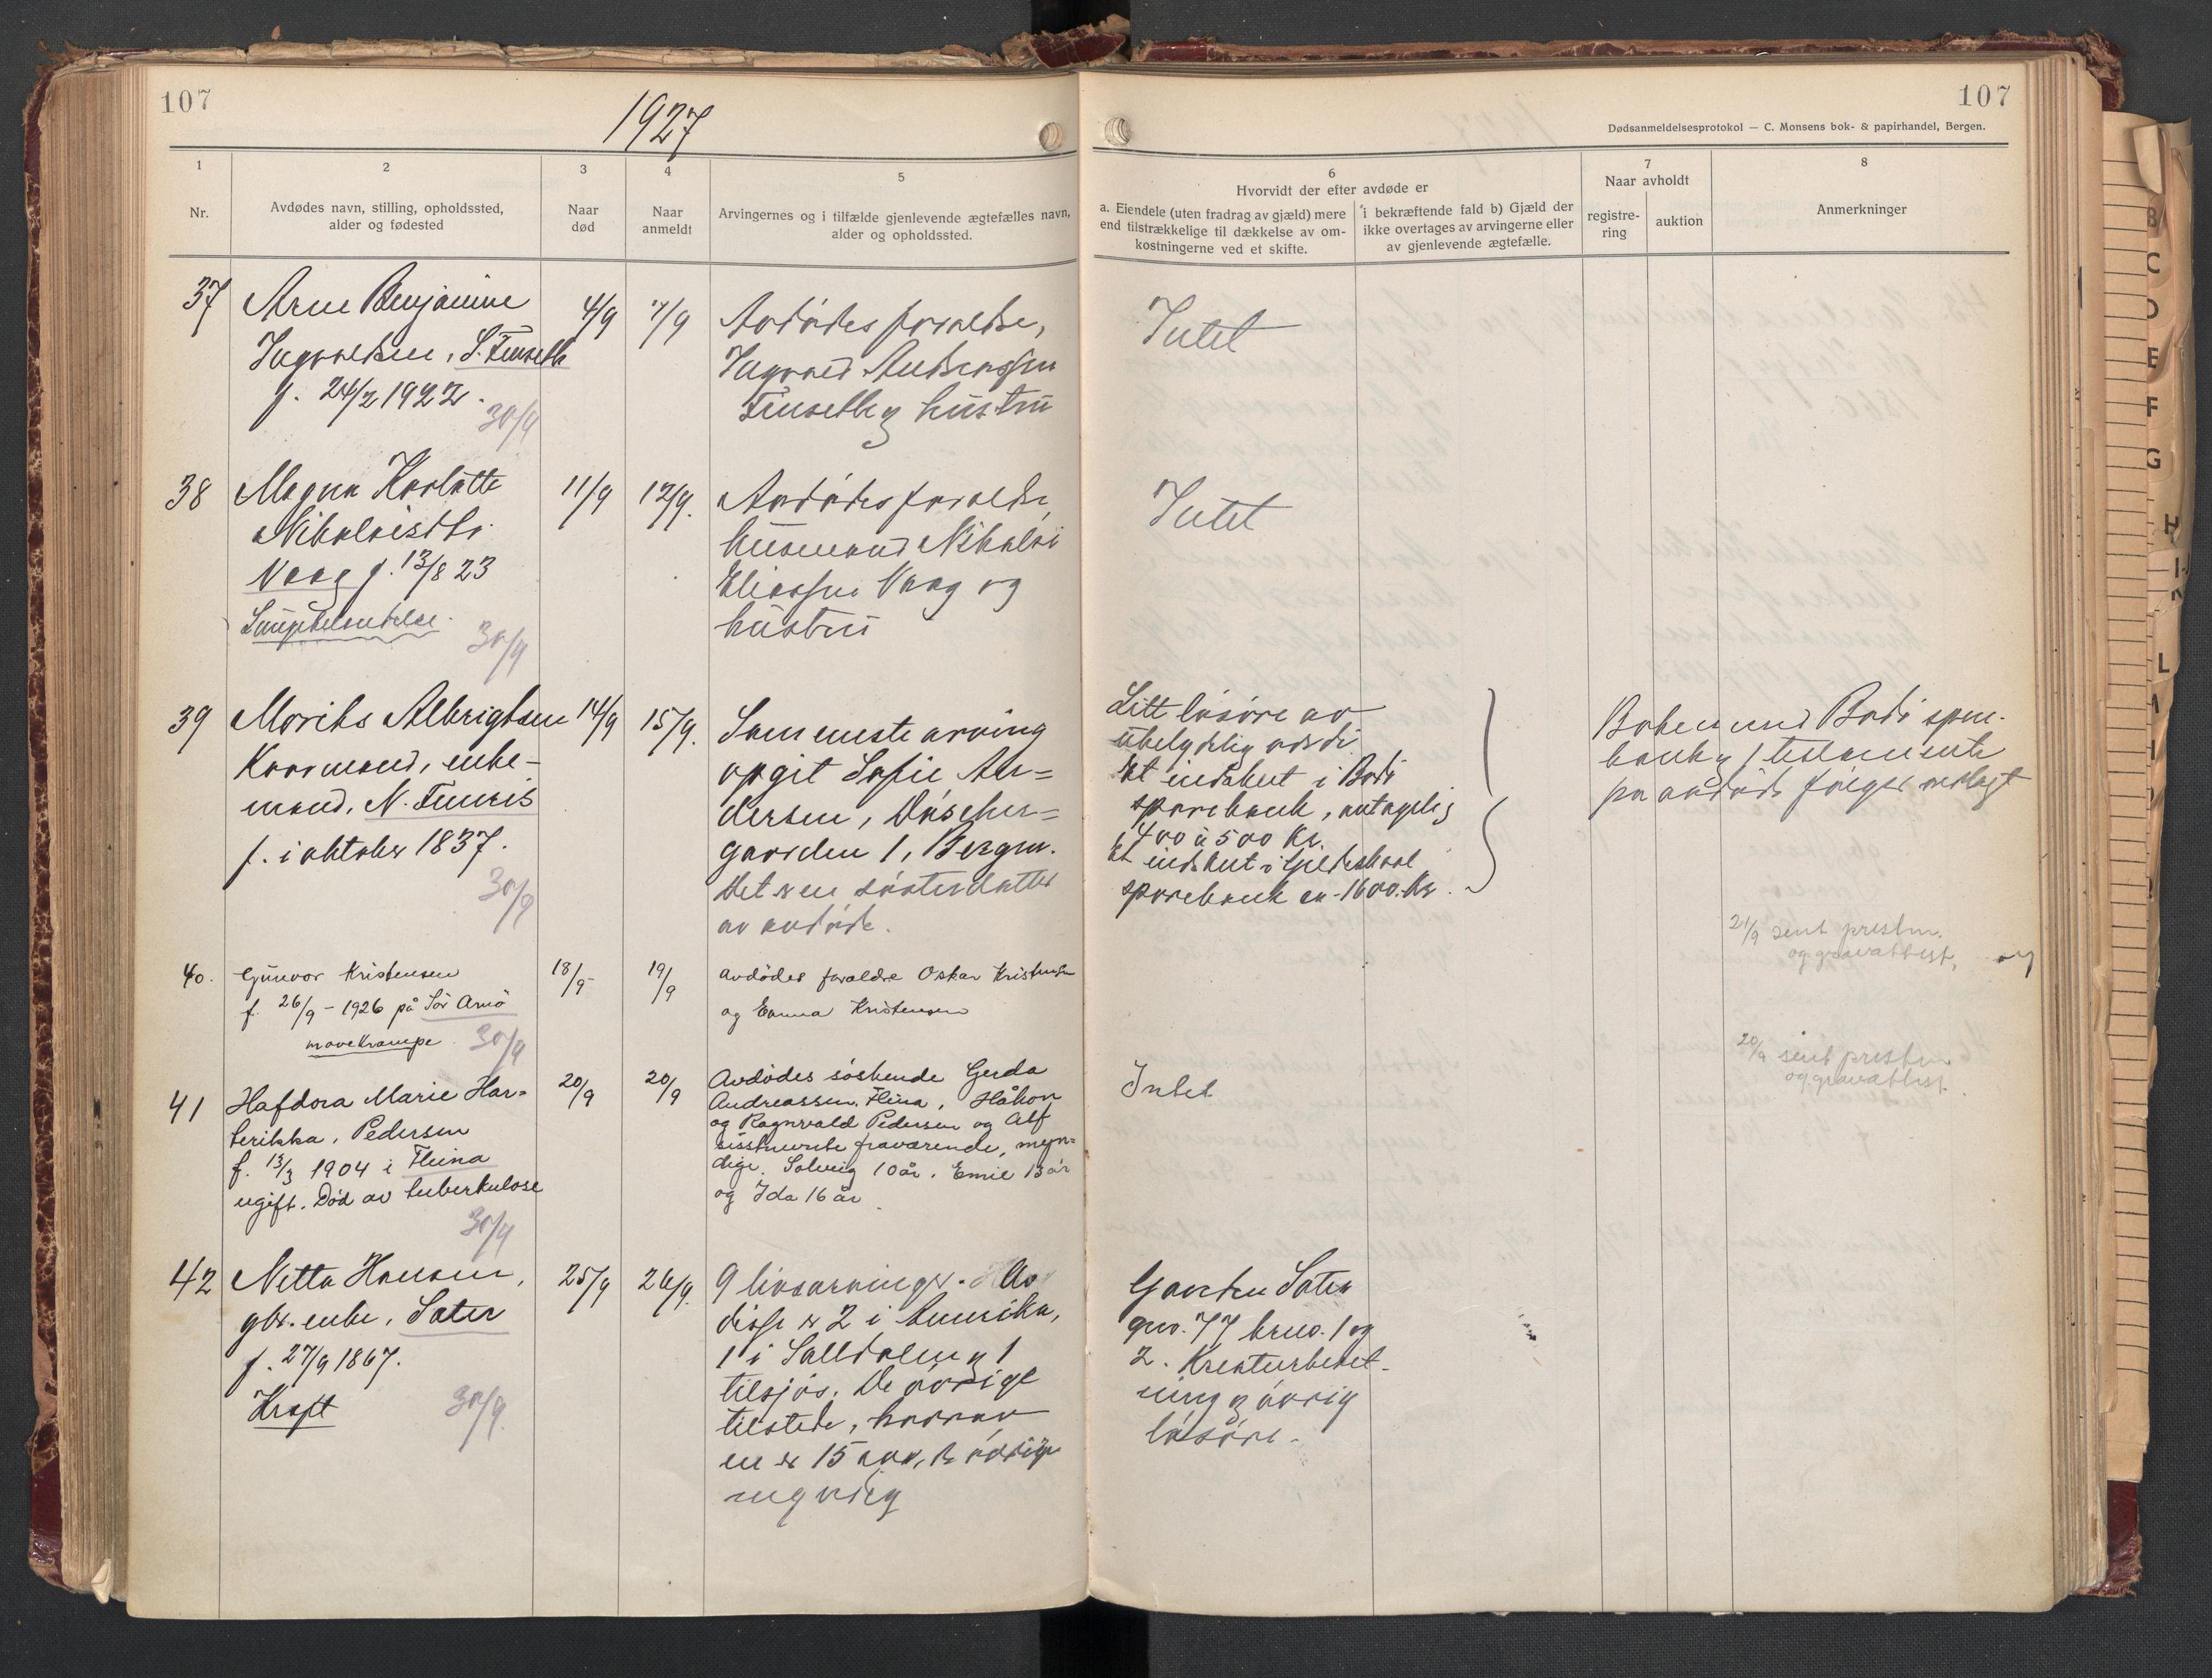 107
1927
107
Dødsanmeldelsesprotokol — C. Monsens bok- & papirhandel, Bergen.
1
Nr.
2
Avdødes navn, stilling, opholdssted,
alder og fødested
3
Naar
død
4
Naar
anmeldt
5
Arvingernes og i tilfælde gjenlevende ægtefælles navn,
alder og opholdssted.
6
Hvorvidt der efter avdøde er
a. Eiendele (uten fradrag av gjæld) mere
end tilstrækkelige til dækkelse av om-
kostningerne ved et skifte.
i bekræftende fald b) Gjæld der
ikke overtages av arvingerne eller
av gjenlevende ægtefælle.
7
Naar avholdt
registre-
ring
auktion
8
Anmerkninger
37
Arne Benjamine
Ingvaldsen, S.
f. 24/2 1922.
30/9
4/9
7/9
Avdødes foraldre,
Ingvald Anderssen
og hustru
Intet
38
Magna Karlotte
Nikolaisdtr.
Vaag f. 13/8 23
30/9
11/9
12/9.
Avdødes foraldre,
husmand Nikolai
Eliassen Vaag og
hustru
Intet
39
Morits Albrigtsen
Kaarmand, enke-
mand, N.
f. i oktober 1837.
30/9
14/9
15/9.
Som eneste arving
opgit Sofie An=
dersen,
gaarden 1, Bergen.
Det er en søsterdatter
av avdøde.
Litt løsøre av
ubetydelig verdi
Et indskut i Bodø
sparebank, antagelig
400 à 500 Kr.
Et indskut i Gildeskaal
sparebank ca. 1600. Kr.
Boken med Bodø spare-
bank og testamente
40.
Gunvor Kristensen
f. 26/9 - 1926 på Sør Arnö
mavekrampe
30/9
18/9
19/9
Avdødes foraldre Oskar Kristensen
og Emma Kristensen
21/9 sent presten
og gravattest,
41
Hafdora Marie Har-
terikka, Pedersen
f. 13/3 1904 i Fleina
ugift. Död av tuberkulose
30/9
20/9
20/9
Avdødes söskende Gerda
Andreassen, Fleina, Håkon
og Ragnvald Pedersen og Alf
sisstnevnte fraværende, myn=
dige. Solveig 10 år. Emil 13 år
og Ida 16 år.
Intet
20/9 sent presten
og gravattest.
42
Nitta Hansen,
gbr. enke, Sater
f. 27/9 1867.
Kraft
30/9.
25/9
26/9.
9 livsarvinger. Av
disse er 2 i Amerika,
1 i Salldalen og 1
tilsjøs. De øvrige
tilstede, hvorav
en er 15 aar, de øvrige
myndig
Gaarden Sater
gno. 77 brno. 1 og
2. Kreaturbeset-
ning og øvrig
løsøre.